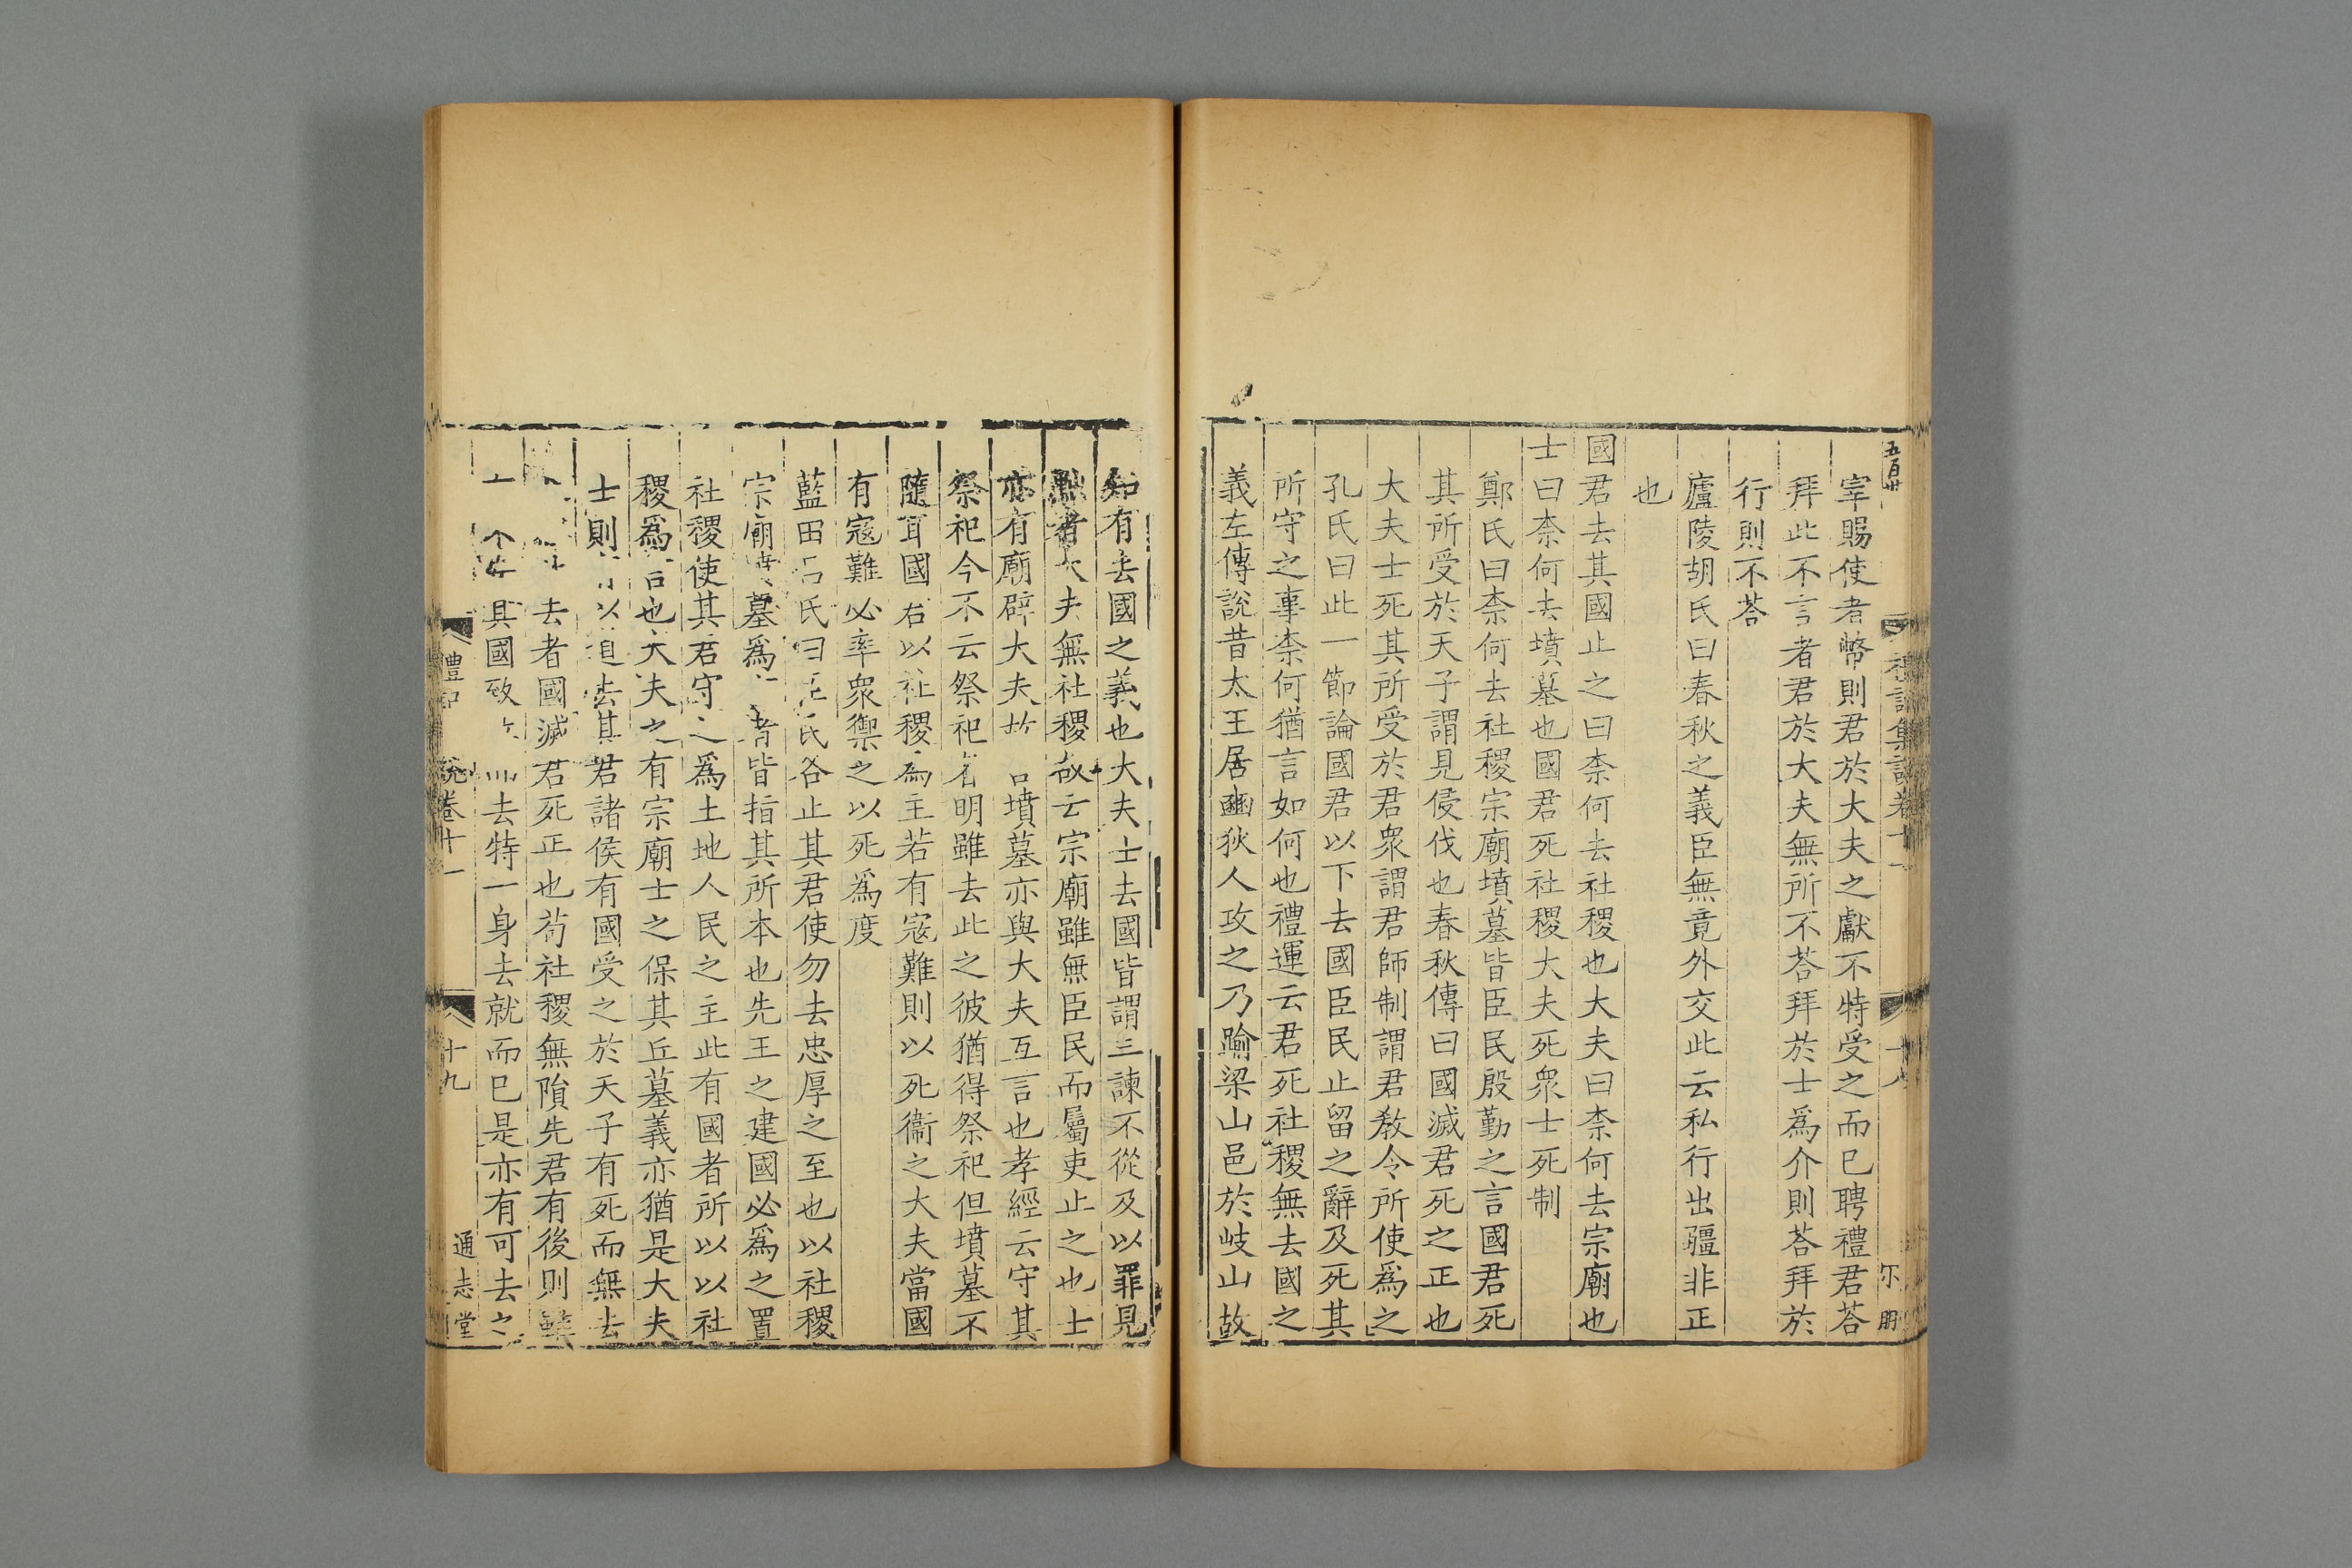 五百廿
禮記集說卷十一
十八
宰賜使者幣則君於大夫之獻不特受之而已聘禮君荅
拜此不言者君於大夫無所不荅拜於士爲介則荅拜於
行則不荅
廬陵胡氏曰春秋之義臣無竟外交此云私行出疆非正
也
國君去其國止之曰柰何去社稷也大夫曰柰何去宗廟也
士曰柰何去墳墓也國君死社稷大夫死衆士死制
鄭氏曰柰何去社稷宗廟墳墓皆臣民殷勤之言國君死
其所受於天子謂見侵伐也春秋傳曰國滅君死之正也
大夫士死其所受於君衆謂君師制謂君教令所使爲之
孔氏曰此一節論國君以下去國臣民止留之辭及死其
所守之事柰何猶言如何也禮運云君死社稷無去國之
義左傳說昔太王居豳狄人攻之乃踰梁山邑於岐山故
知有去國之義也大夫士去國皆謂三諫不從及以罪見
黜者大夫無社稷故云宗廟雖無臣民而屬吏止之也士
亦有廟辟大夫故 墳墓亦與大夫互言也孝經云守其
祭祀今不云祭祀者明雖去此之彼猶得祭祀但墳墓不
隨耳國君以社稷爲主若有寇難則以死衞之大夫當國
有寇難必率衆禦之以死爲度
藍田呂氏曰臣民各止其君使勿去忠厚之至也以社稷
宗廟墳墓爲 者皆指其所本也先王之建國必爲之置
社稷使其君守之爲土地人民之主此有國者所以以社
稷爲言也大夫之有宗廟士之保其丘墓義亦猶是大夫
士則 以道去其君諸侯有國受之於天子有死而無去
去者國滅君死正也苟社稷無隕先君有後則
其國致 去特一身去就而已是亦有可去之
禮記 說卷十一
十九
通志堂